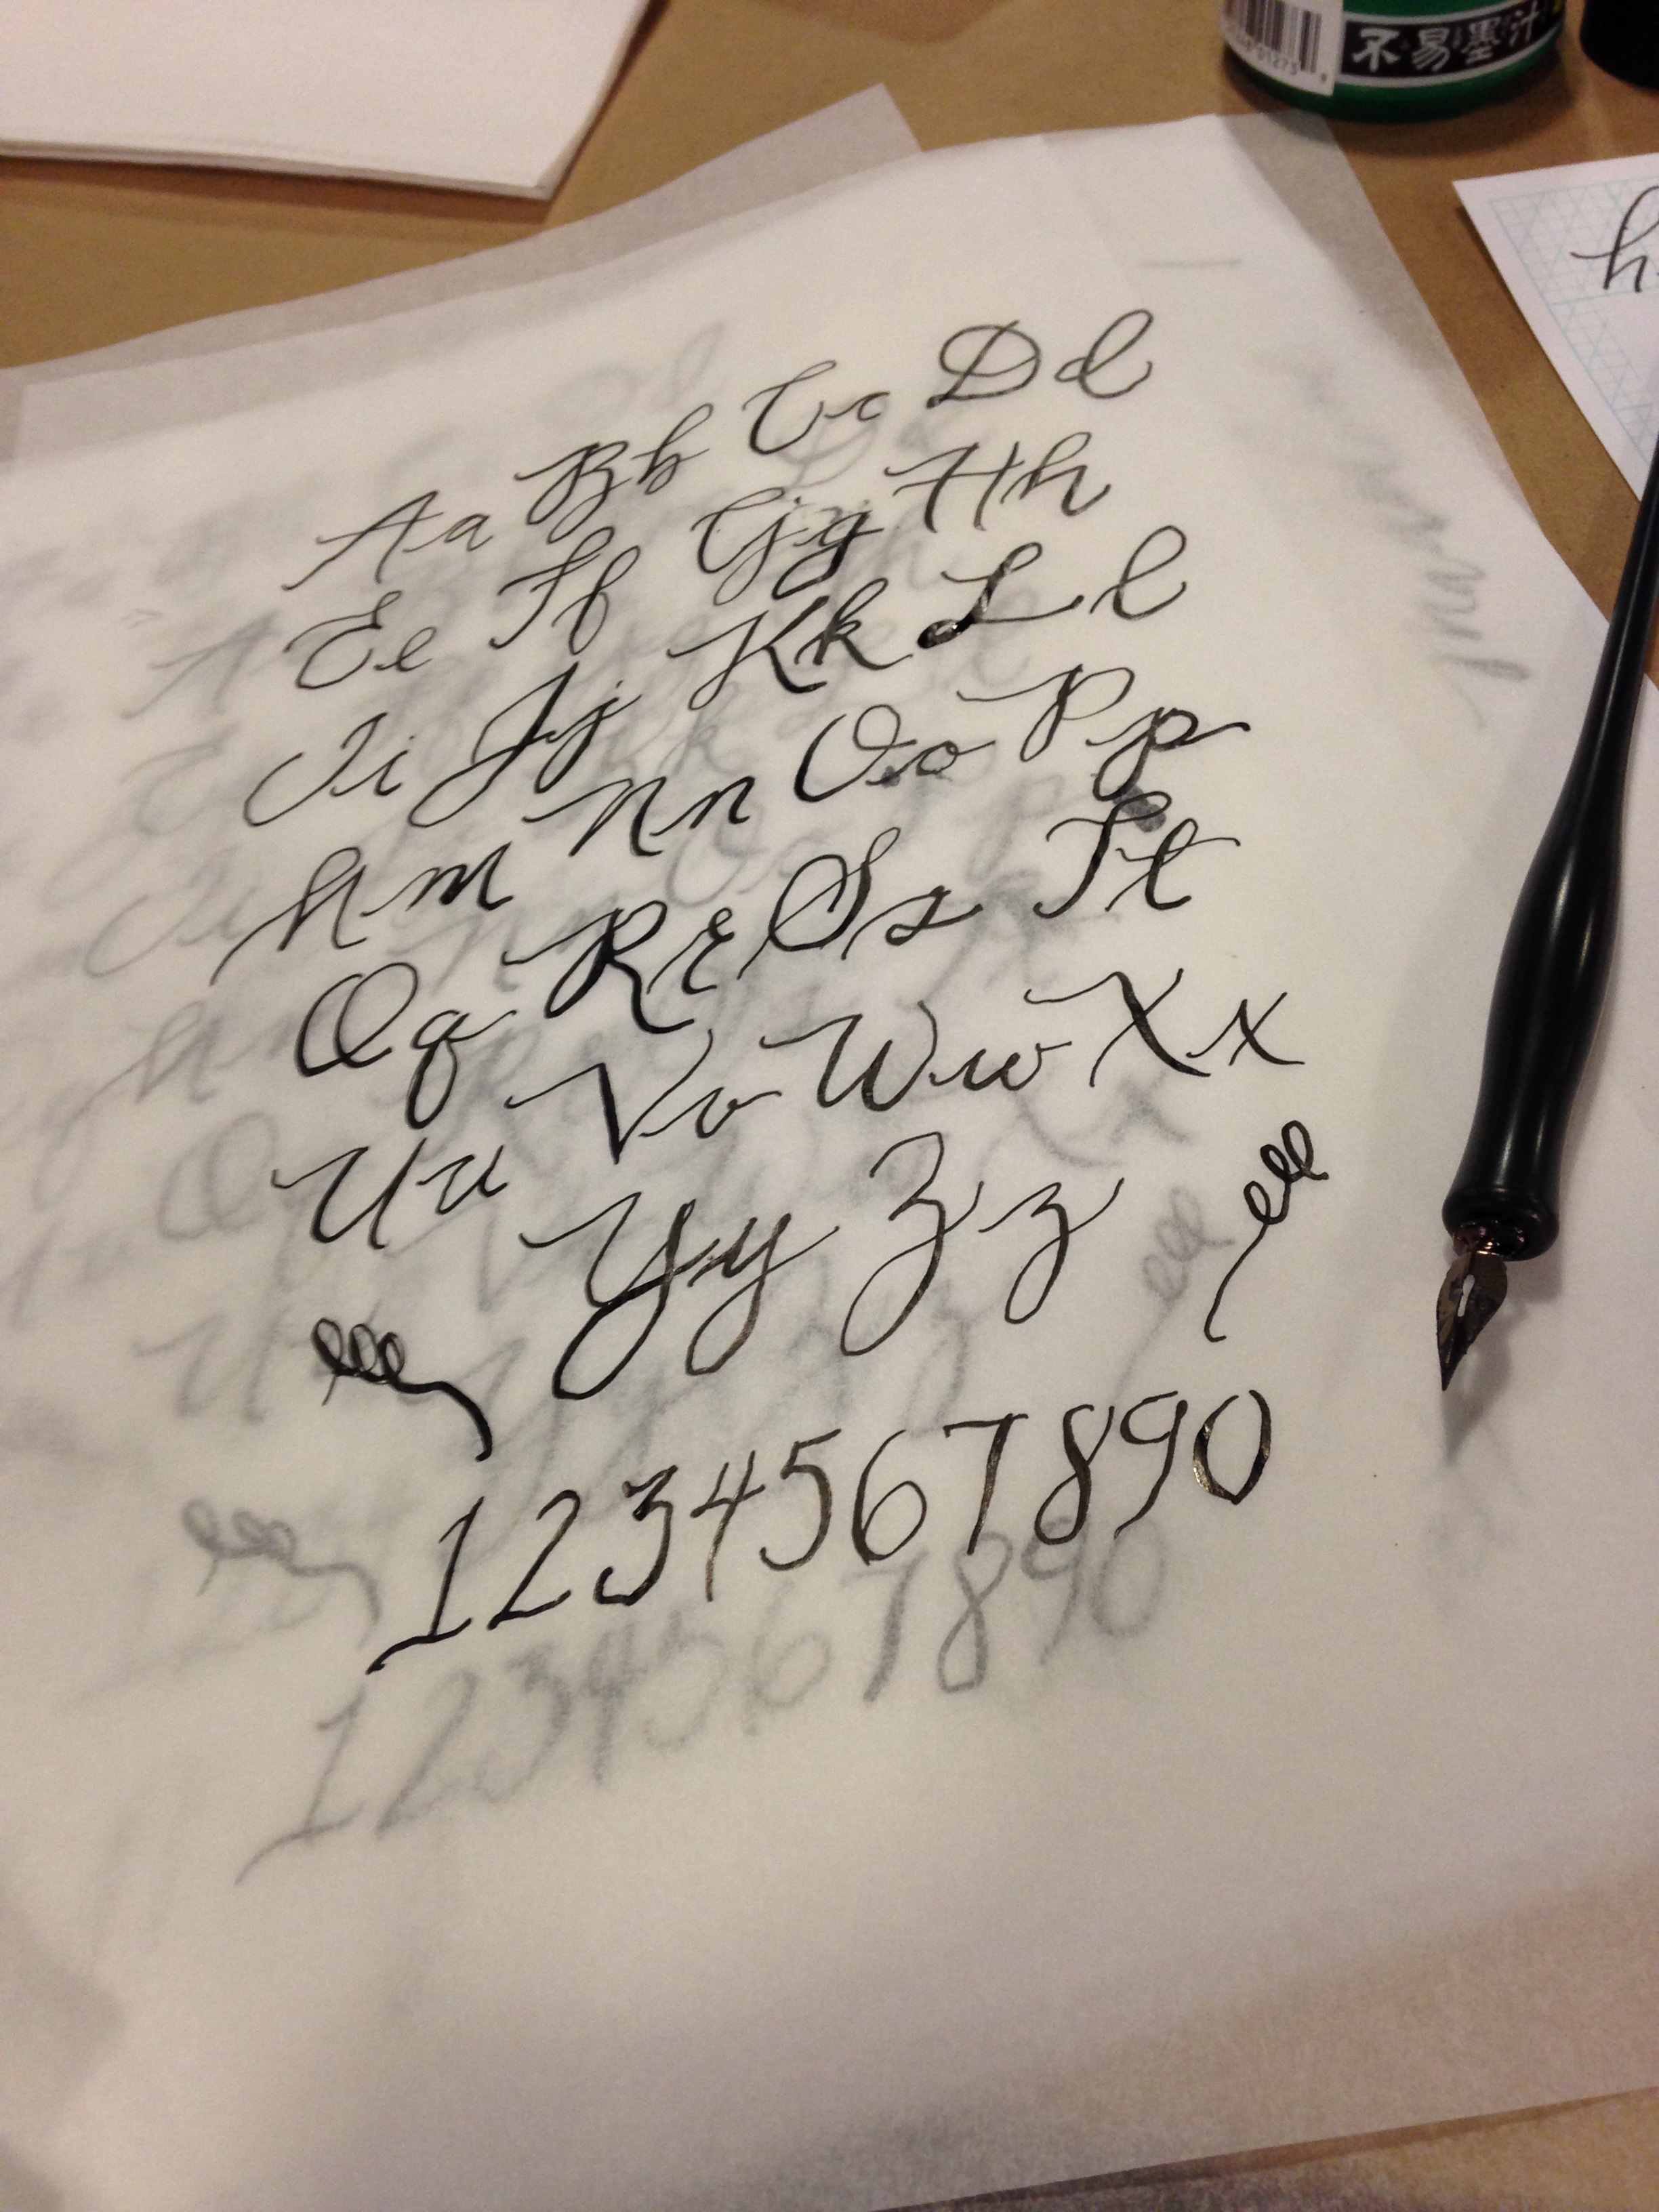 不易墨汁
h
Aa Bb Cc Dd
Ee Ff Gg Hh
Ii Jj Kk Ll
Mm Nn Oo Pp
Qq Rr Ss Tt
Uu Vv Ww Xx
Yy Zz
1234567890
1234567890